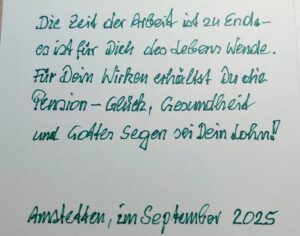 Die Zeit der Arbeit ist zu Ende –
es ist für Dich des Lebens Wende.
Für Dein Wirken erhältst Du die
Pension – Glück, Gesundheit
und Gottes Segen sei Dein Lohn!
Amstetten, im September 2025